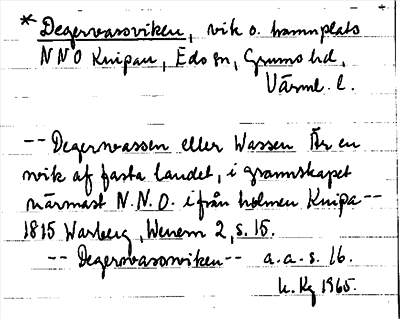 * Degervassviken, vik o. hamnplats
NNO Knipan, Eds sn, Grums hd,
Värml. l.
-- Degervassen eller Wassen Är en
wik af fasta landet, i grannskapet
närmast N.N.O. ifrån holmen Knipa --
1815 Warberg, Wenern 2, s. 15.
-- Degervassviken -- a.a. s. 16.
K. Kg 1965.